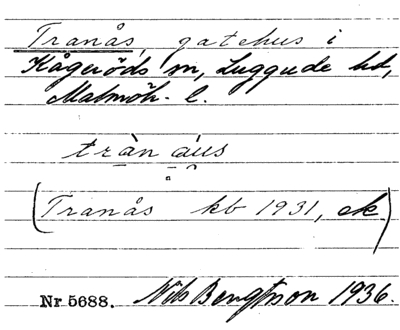 Tranås, gatehus i
Kågeröds sn, Luggude hd,
Malmöh. l.
tràn áus
(Tranås kb 1931, ek.)
Nr 5688. Nils Bengtson 1936.